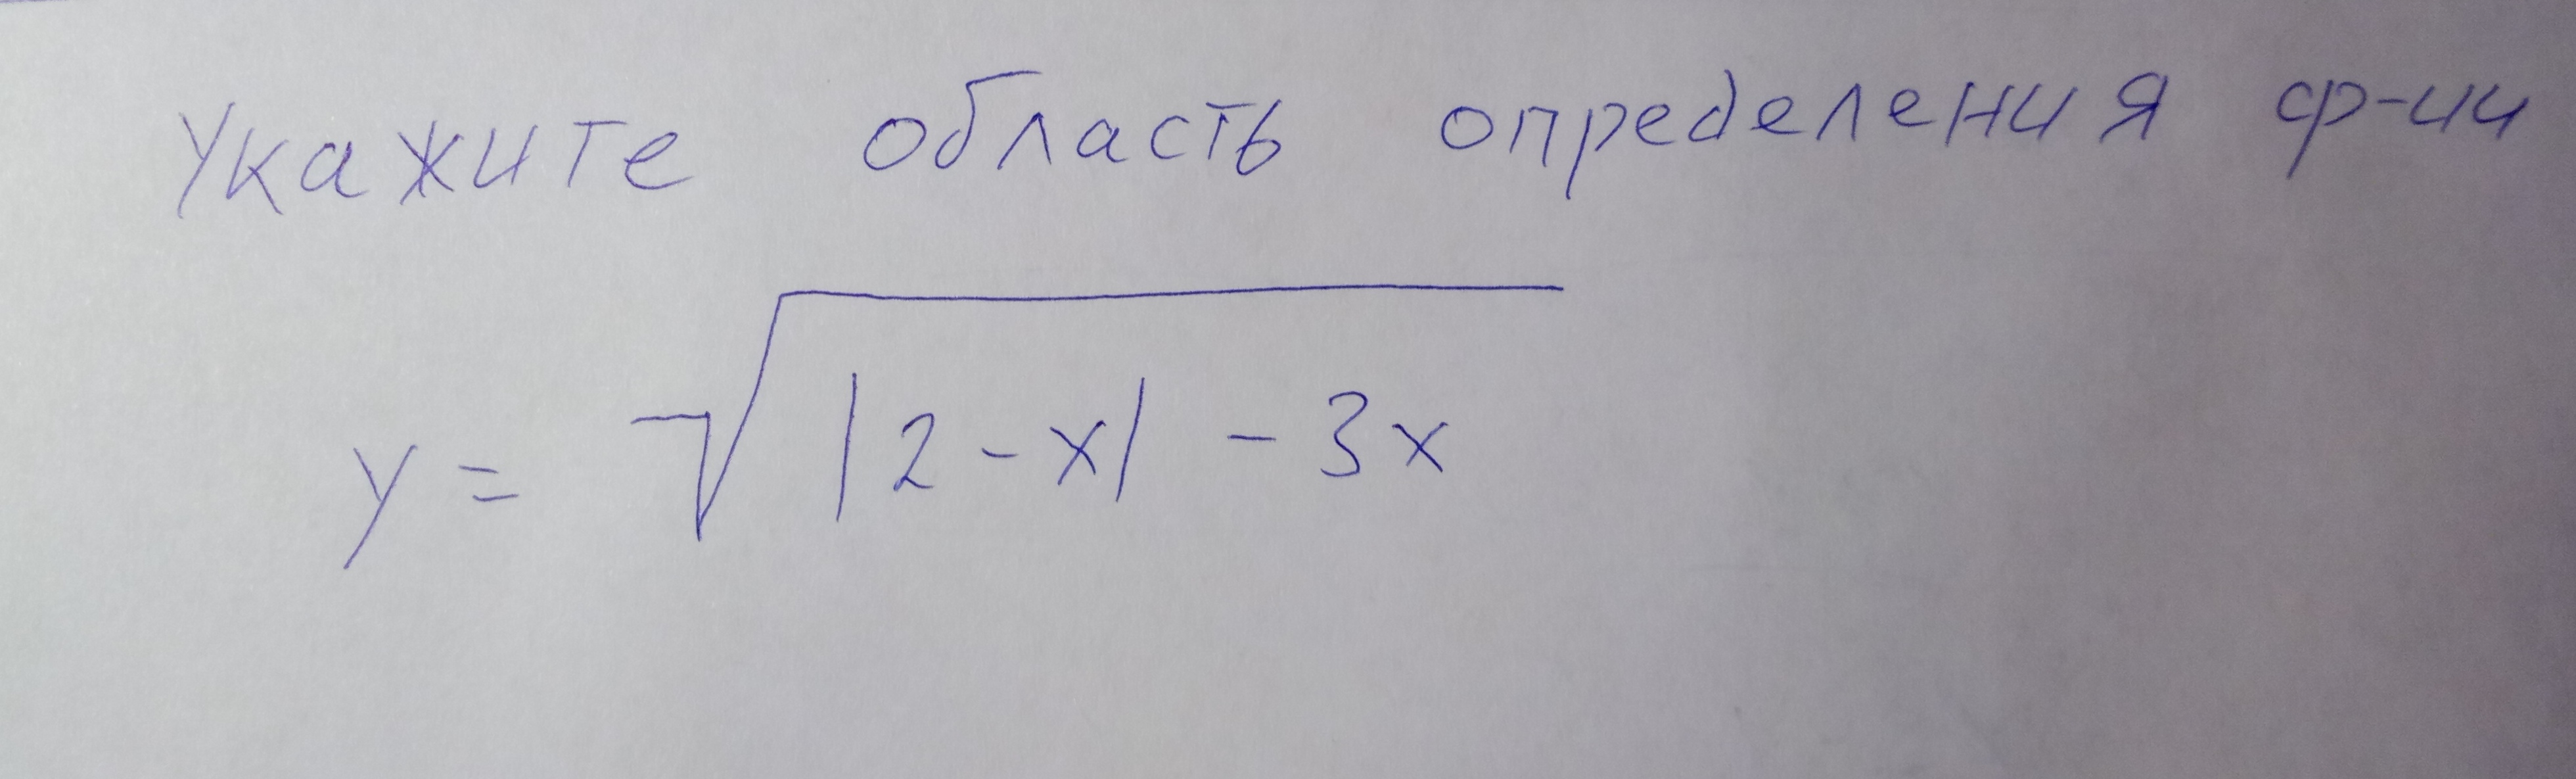 Укажите область определения ф-ии
y = √|2-x| - 3x